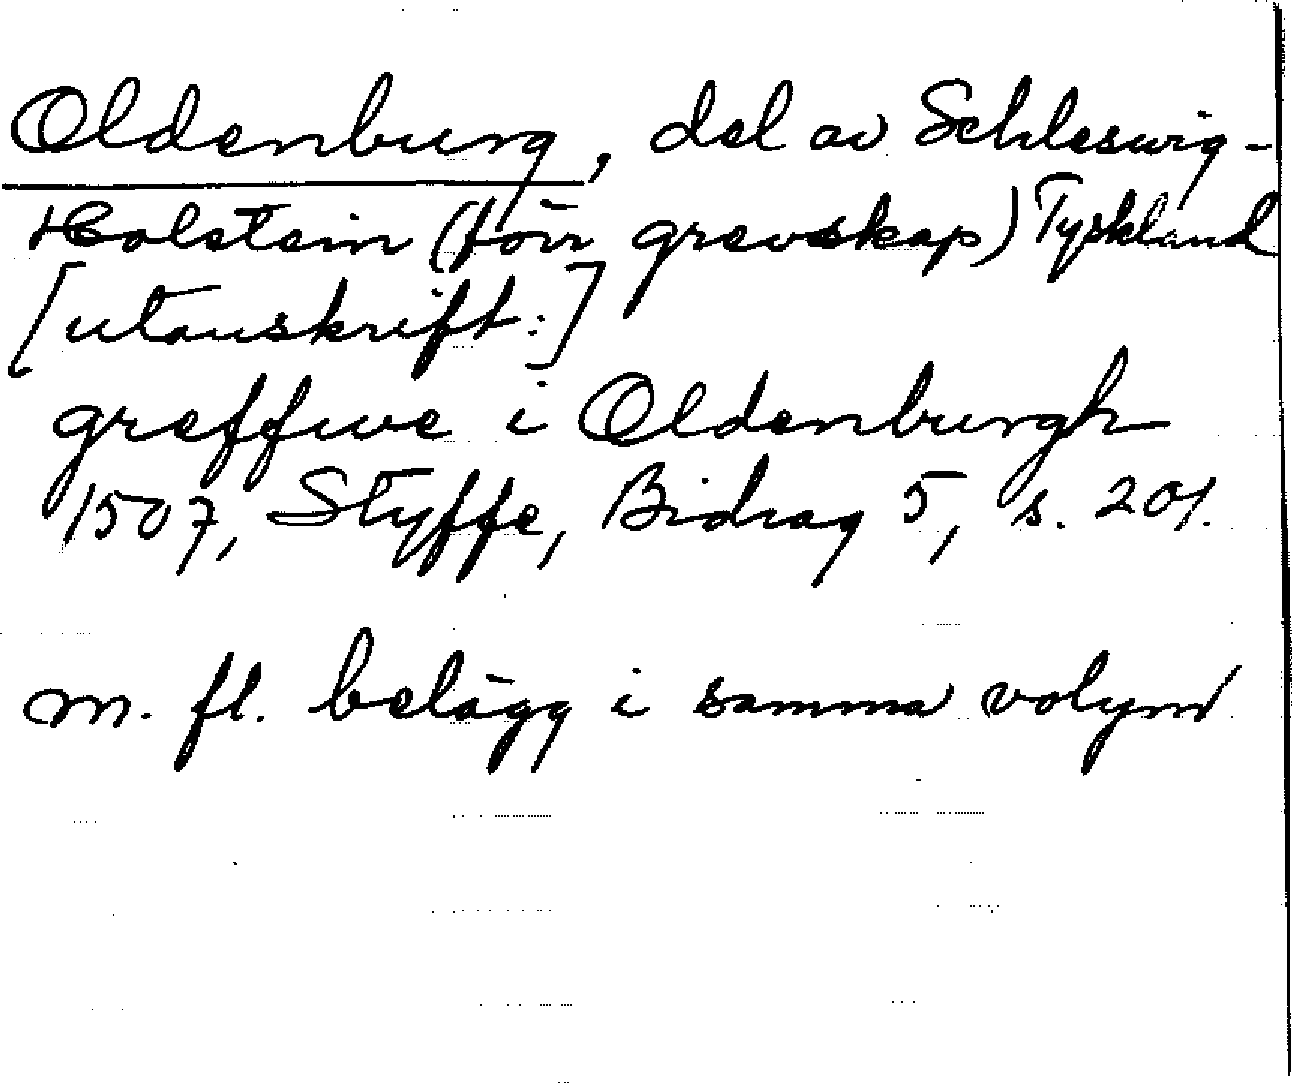 Oldenburg, del av Schleswig-
Holstein (förr grevskap) Tyskland
[utanskrift:]
greffwe i Oldenburgh
1507, Styffe, Bidrag 5, s. 201.
m. fl. belägg i samma volym